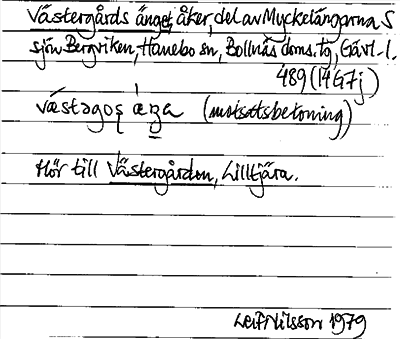 Västergårds änget, åker, del av Myckelängarna S
sjön Bergviken, Hanebo sn, Bollnäs doms. tg, Gävl. l.
489 (14G7j)
(motsatsbetoning)
Hör till Västergården, Lilltjära.
Leif Nilsson 1979